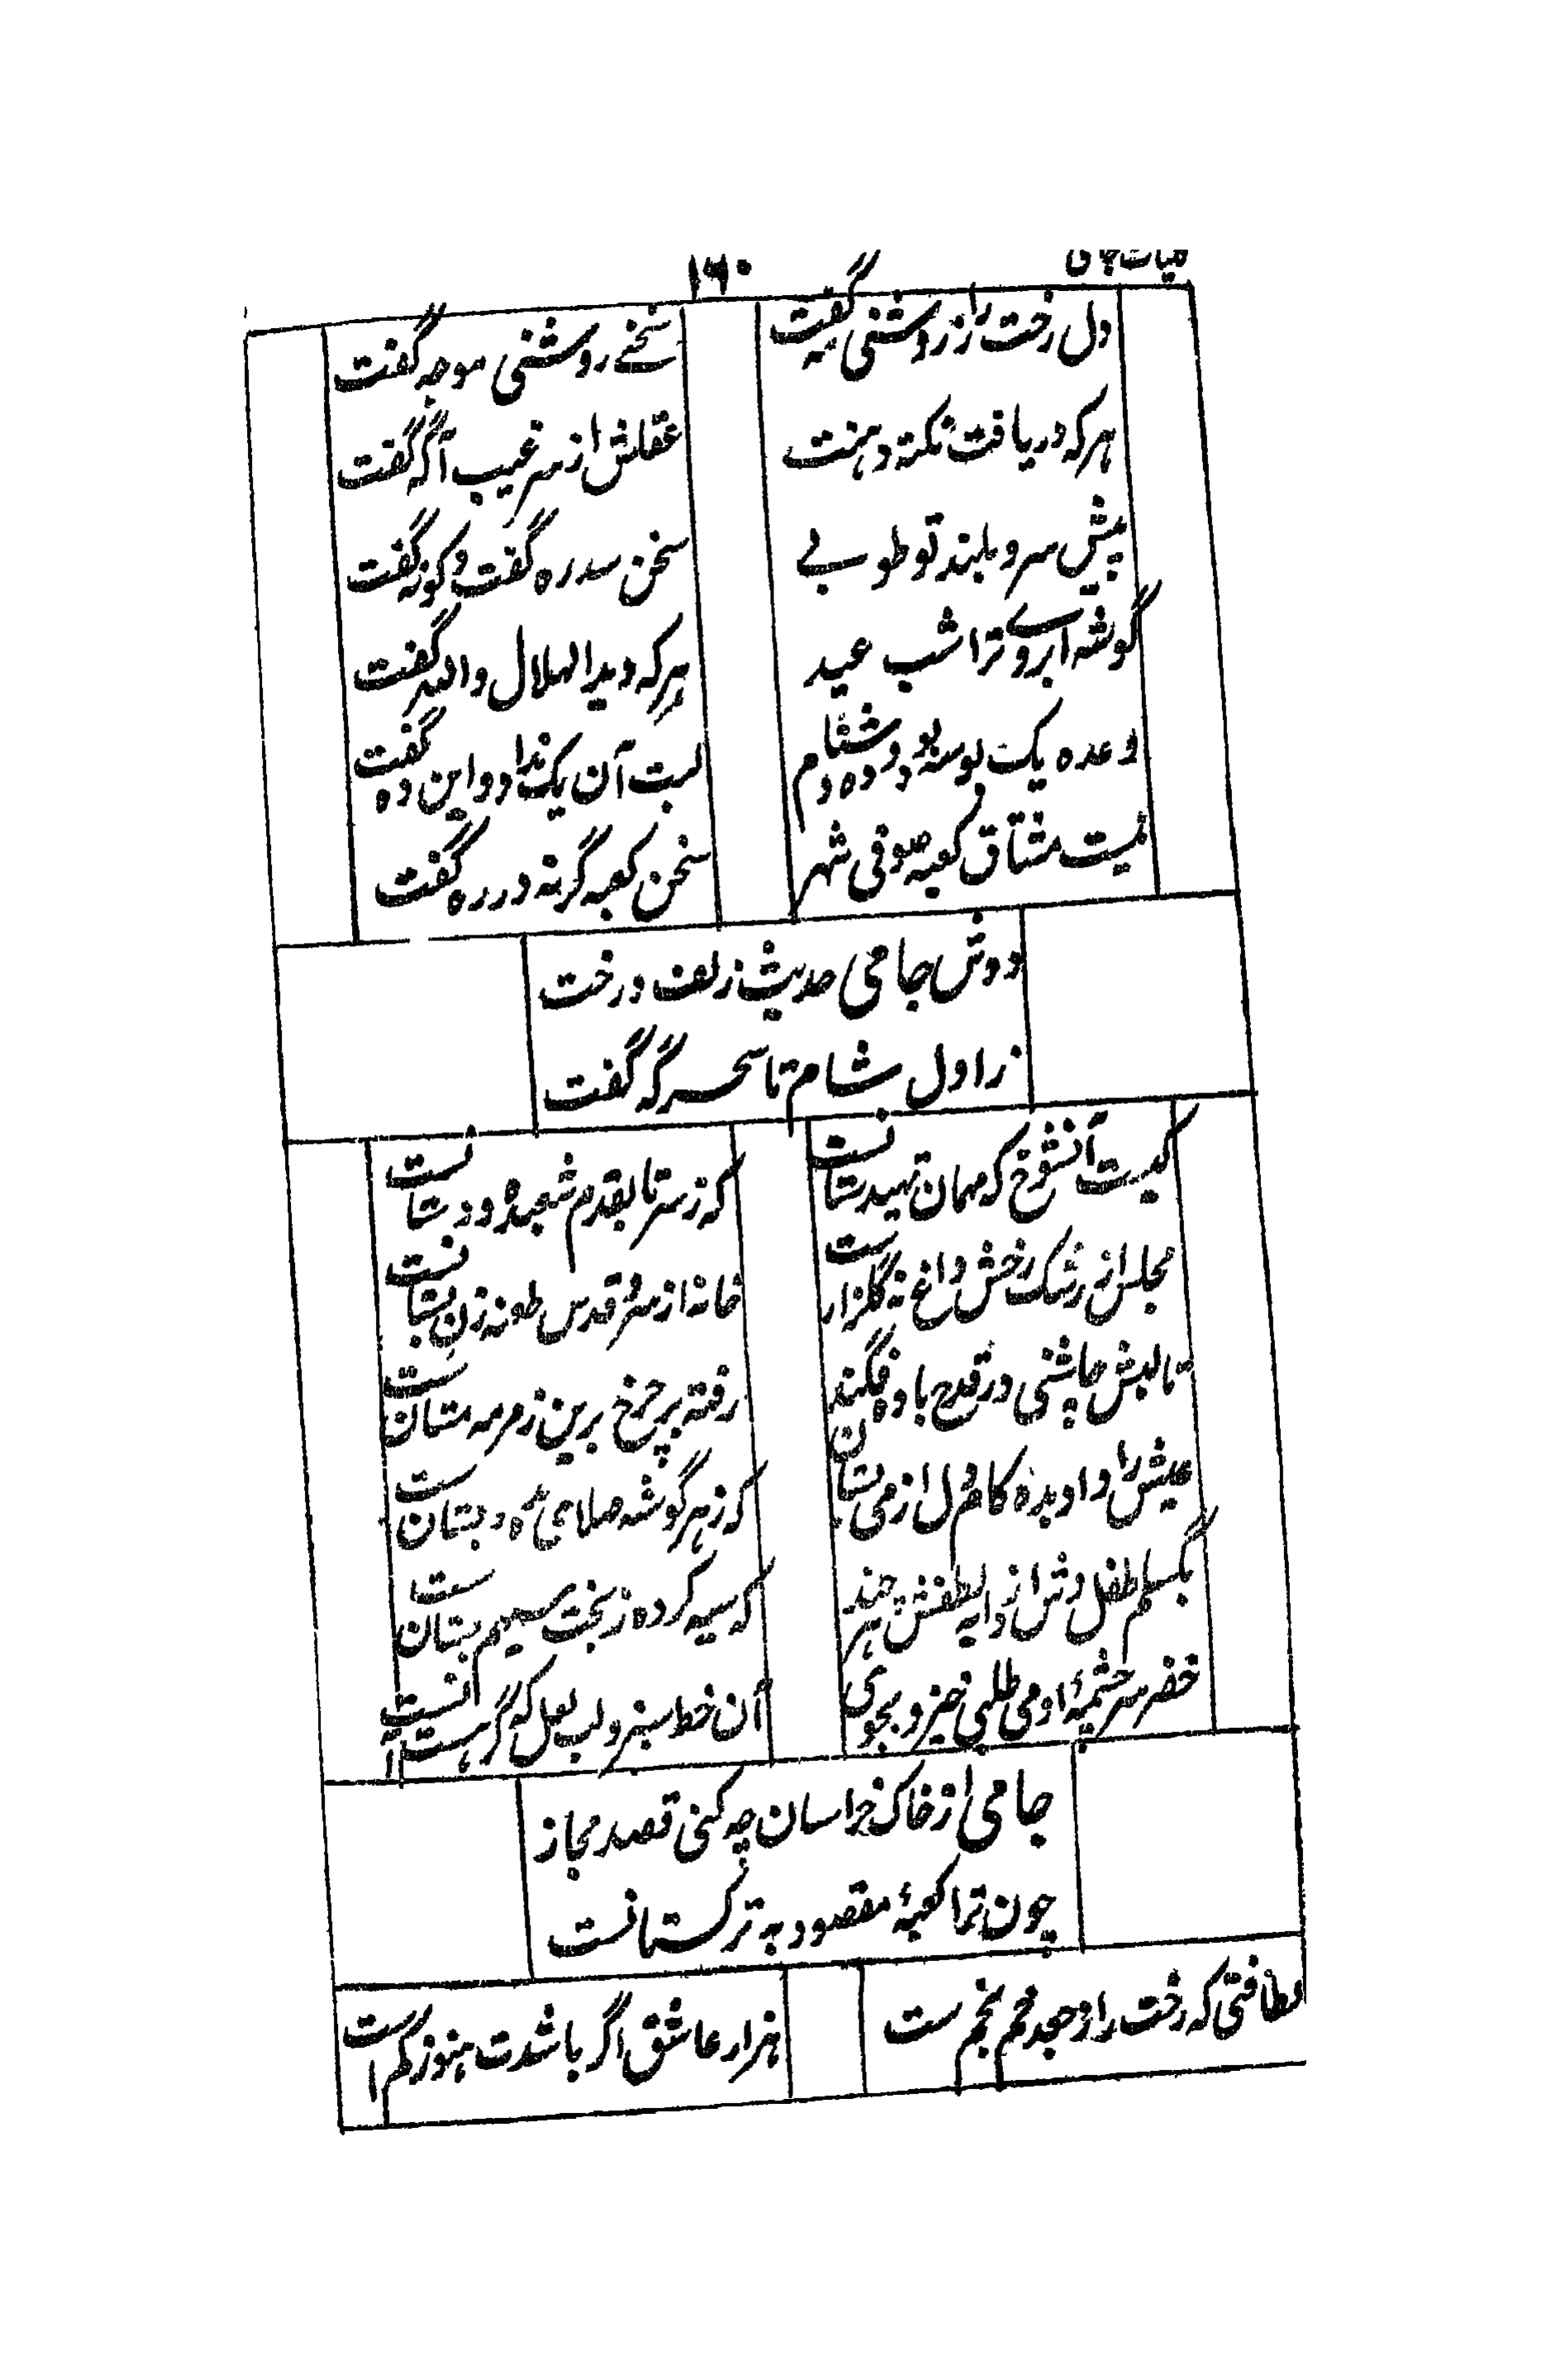 ۱۶۰
دل رخت را ز روشنی مه گفت
سخنے روشنی موجه گفت
هرکه دریافت نکته دهنت
عقلش از سر غیب آگه گفت
پیش سرو بلند تو طوبے
سخن سدره گفت و کوته گفت
گوشه ابروے ترا شب عید
هرکه دید الهلال والله گفت
وعده یک بوسه بود و ده دشنام
لبت آن یک نداد و این ده گفت
نیست مشتاق کعبه صوفی شهر
سخن کعبه گرنه در ره گفت
دوش جامی حدیث زلف و رخت
ز اول شام تا سحرگه گفت
کیست آنشوخ که مهمان تهیدستانست
که ز سر تا بقدم شعبده و دستانست
مجلس از رشک رخش داغ نه گلزارست
خانه از سرو قدس طعنه زن بستانست
تا لبش چاشنی در قدح باده فگند
رفته بر چرخ برین زمزمه مستانست
عیش را داد بده کام دل از می بستان
که ز هر گوشه صلای بده و بستانست
بگسلم طفل وش از دایه لطفش هر چند
که سیه کرده ز بخت سیهم بستانست
خضر سرچشمۀ او می طلبی خیز و بجوی
آن خط سبز و لب لعل که گر هست آنست
جامی از خاک خراسان چه کنی قصد حجاز
چون ترا کعبۀ مقصود به ترکستانست
لطافتی که رخت را وجد فخم نجم ست
هزار عاشق اگر باشدت هنوز کم است